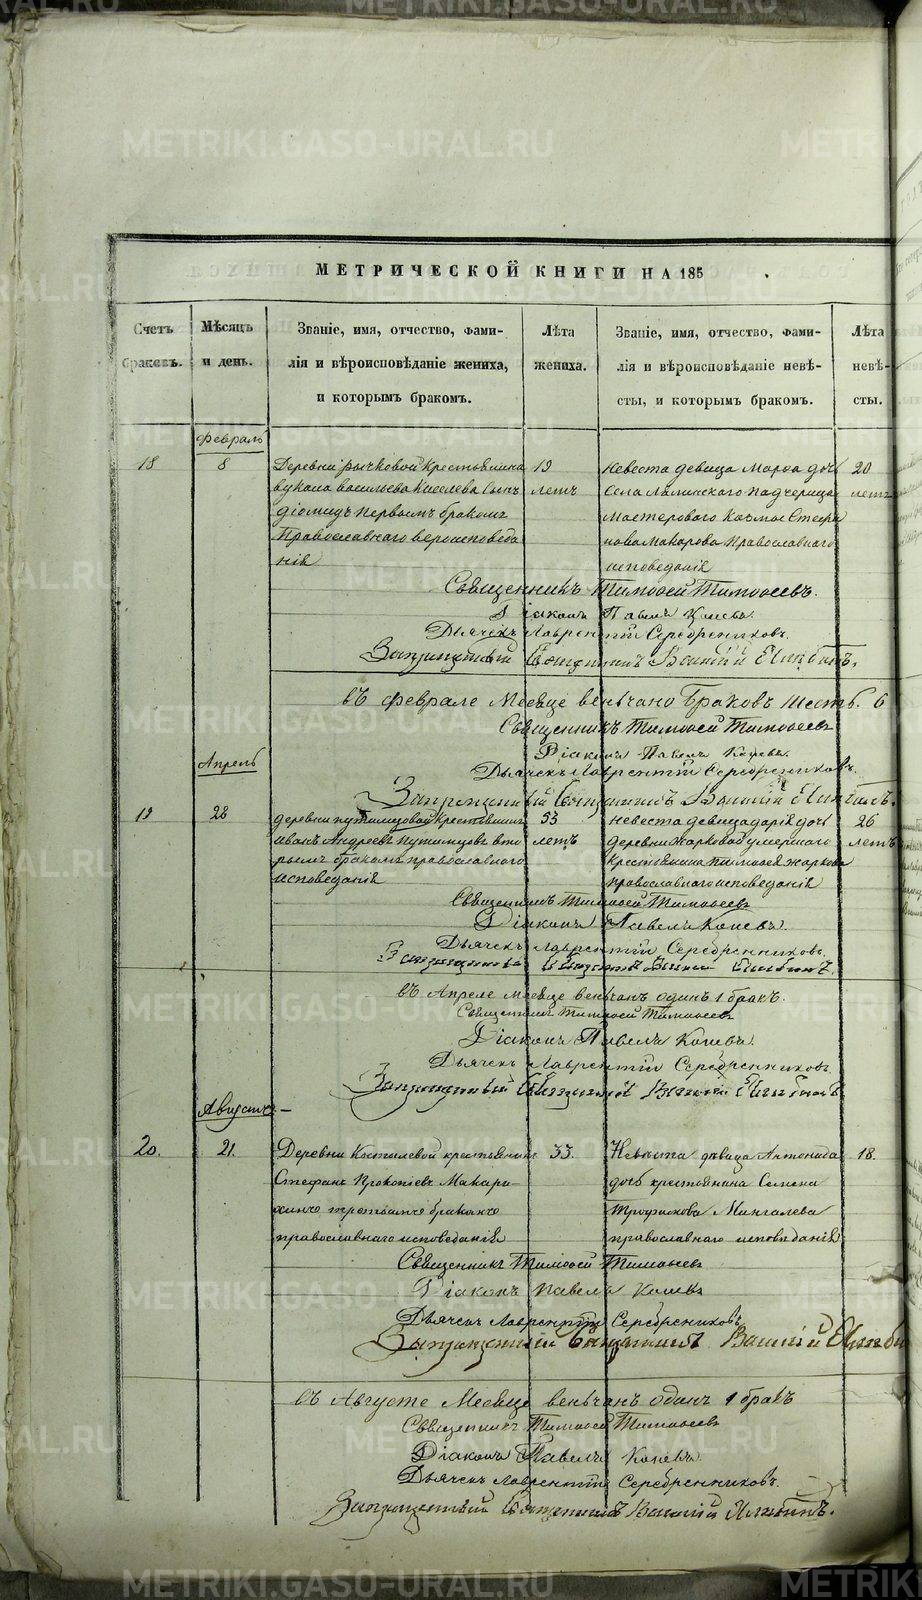 METRIKI.GASO-URAL.RU
МЕТРИЧЕСКОЙ КНИГИ НА 185
Счетъ браковъ.
Мѣсяцъ и день.
Званіе, имя, отчество, фами-
лія и вѣроисповѣданіе жениха,
и которымъ бракомъ.
Лѣта жениха.
Званіе, имя, отчество, фами-
лія и вѣроисповѣданіе невѣ-
сты, и которымъ бракомъ.
Лѣта невѣ-
сты.
Февраль
18
8
Деревни Рычковой крестьянина
вукола васильева Киселева сынъ
діомидъ первымъ бракомъ
Православнаго вероисповеда
нія
19
летъ
невеста девица Марѳа дочь
Села падчерица
мастероваго Космы Стефа
нова Макарова православнаго
исповеданія
20
летъ
Священникъ Тимоѳей Тимоѳеевъ.
Діаконъ Павелъ Коневъ
Дьячекъ Лаврентій Серебренниковъ.
Запрещенный Священникъ Василій
въ феврале месяце веньчано браковъ шесть. 6
Священникъ Тимоѳей Тимоѳеевъ
Діаконъ Павелъ Коневъ.
Дьячекъ Лаврентій Серебренниковъ.
Запрещенный Священникъ Василій
Апрель
19
28
деревни путимцовой крестьянинъ
иванъ Андреевъ Путимцовъ вто
рымъ бракомъ православнаго
исповеданія
53
летъ
невеста девица дарія дочь
деревни жарковой умершаго
крестьянина тимоѳея жаркова
православнаго исповеданія
26
летъ
Священникъ Тимоѳей Тимоѳеевъ
Діаконъ Павелъ Коневъ.
Дьячекъ Лаврентій Серебренниковъ.
Запрещенный Священникъ Василій
въ Апреле месяце веньчанъ одинъ 1 бракъ.
Священникъ Тимоѳей Тимоѳеевъ
Діаконъ Павелъ Коневъ.
Дьячекъ Лаврентій Серебренниковъ
Запрещенный Священникъ Василій
Августъ
20.
21.
Деревни Костылевой крестьянинъ
Стефанъ Прокопіевъ Макари
хинъ третьимъ бракомъ
православнаго исповеданія
33.
Невеста девица Антонида
дочь крестьянина Семена
Трофимова Мингалева
православнаго исповеданія
18.
Священникъ Тимоѳей Тимоѳеевъ
Діаконъ Павелъ Коневъ
Дьячекъ Лаврентій Серебренниковъ
Запрещенный Священникъ Василій
въ Августе Месяце веньчанъ одинъ 1 бракъ
Священникъ Тимоѳей Тимоѳеевъ
Діаконъ Павелъ Коневъ.
Дьячекъ Лаврентій Серебренниковъ.
Запрещенный Священникъ Василій